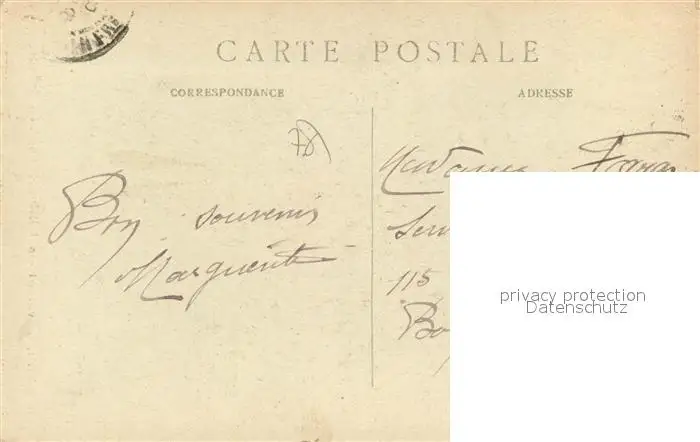 CARTE POSTALE
CORRESPONDANCE
ADRESSE
78
Bon souvenir
Marguerite
Madame
115
privacy protection
Datenschutz